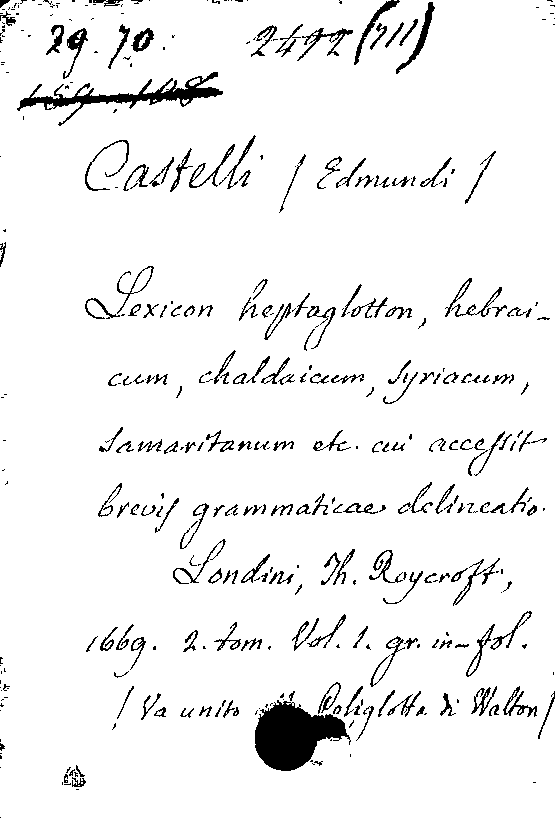 29. 70. 2492 (711)
159. 108
Castelli / Edmundi /
Lexicon heptaglotton, hebrai-
cum, chaldaicum, syriacum,
samaritanum etc. cui accessit
brevis grammaticae delineatio.
Londini, Th. Roycroft,
1669. 2. tom. Vol. 1. gr. in-fol.
/ Va unito Poliglotta di Walton /